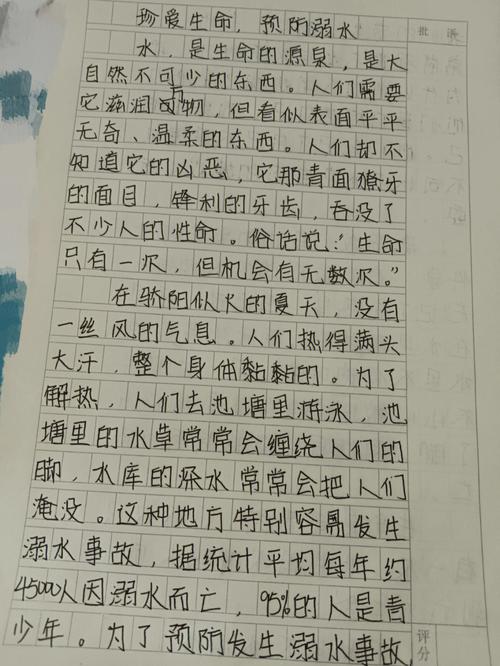 珍爱生命，预防溺水
批语
水，是生命的源泉，是大
自然不可少的东西。人们需要
它滋润万物，但看似表面平平
无奇、温柔的东西。人们却不
知道它的凶恶，它那青面獠牙
的面目，锋利的牙齿，吞没了
不少人的性命。俗话说："生命
只有一次，但机会有无数次。"
在骄阳似火的夏天，没有
一丝风的气息。人们热得满头
大汗，整个身体黏黏的。为了
解热，人们去池塘里游泳，池
塘里的水草常常会缠绕人们的
脚，水库的深水常常会把人们
淹没。这种地方特别容易发生
溺水事故，据统计平均每年约
45000人因溺水而亡，95%的人是青
少年。为了预防发生溺水事故
评分